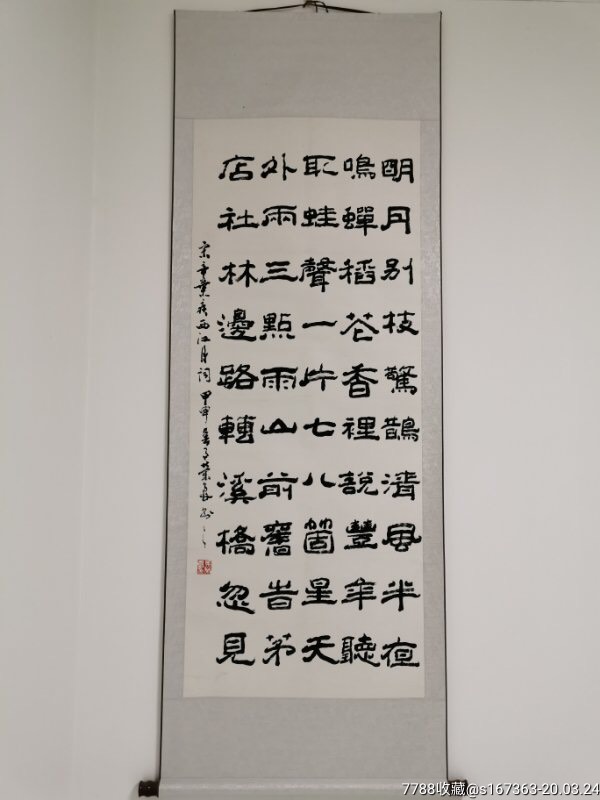 明月別枝驚鵲清風半夜
鳴蟬稻花香裡說豐年聽
取蛙聲一片七八箇星天
外兩三點雨山前舊旹茅
店社林邊路轉溪橋忽見
宋辛棄疾西江月詞 甲申
7788收藏@s167363-20.03.24